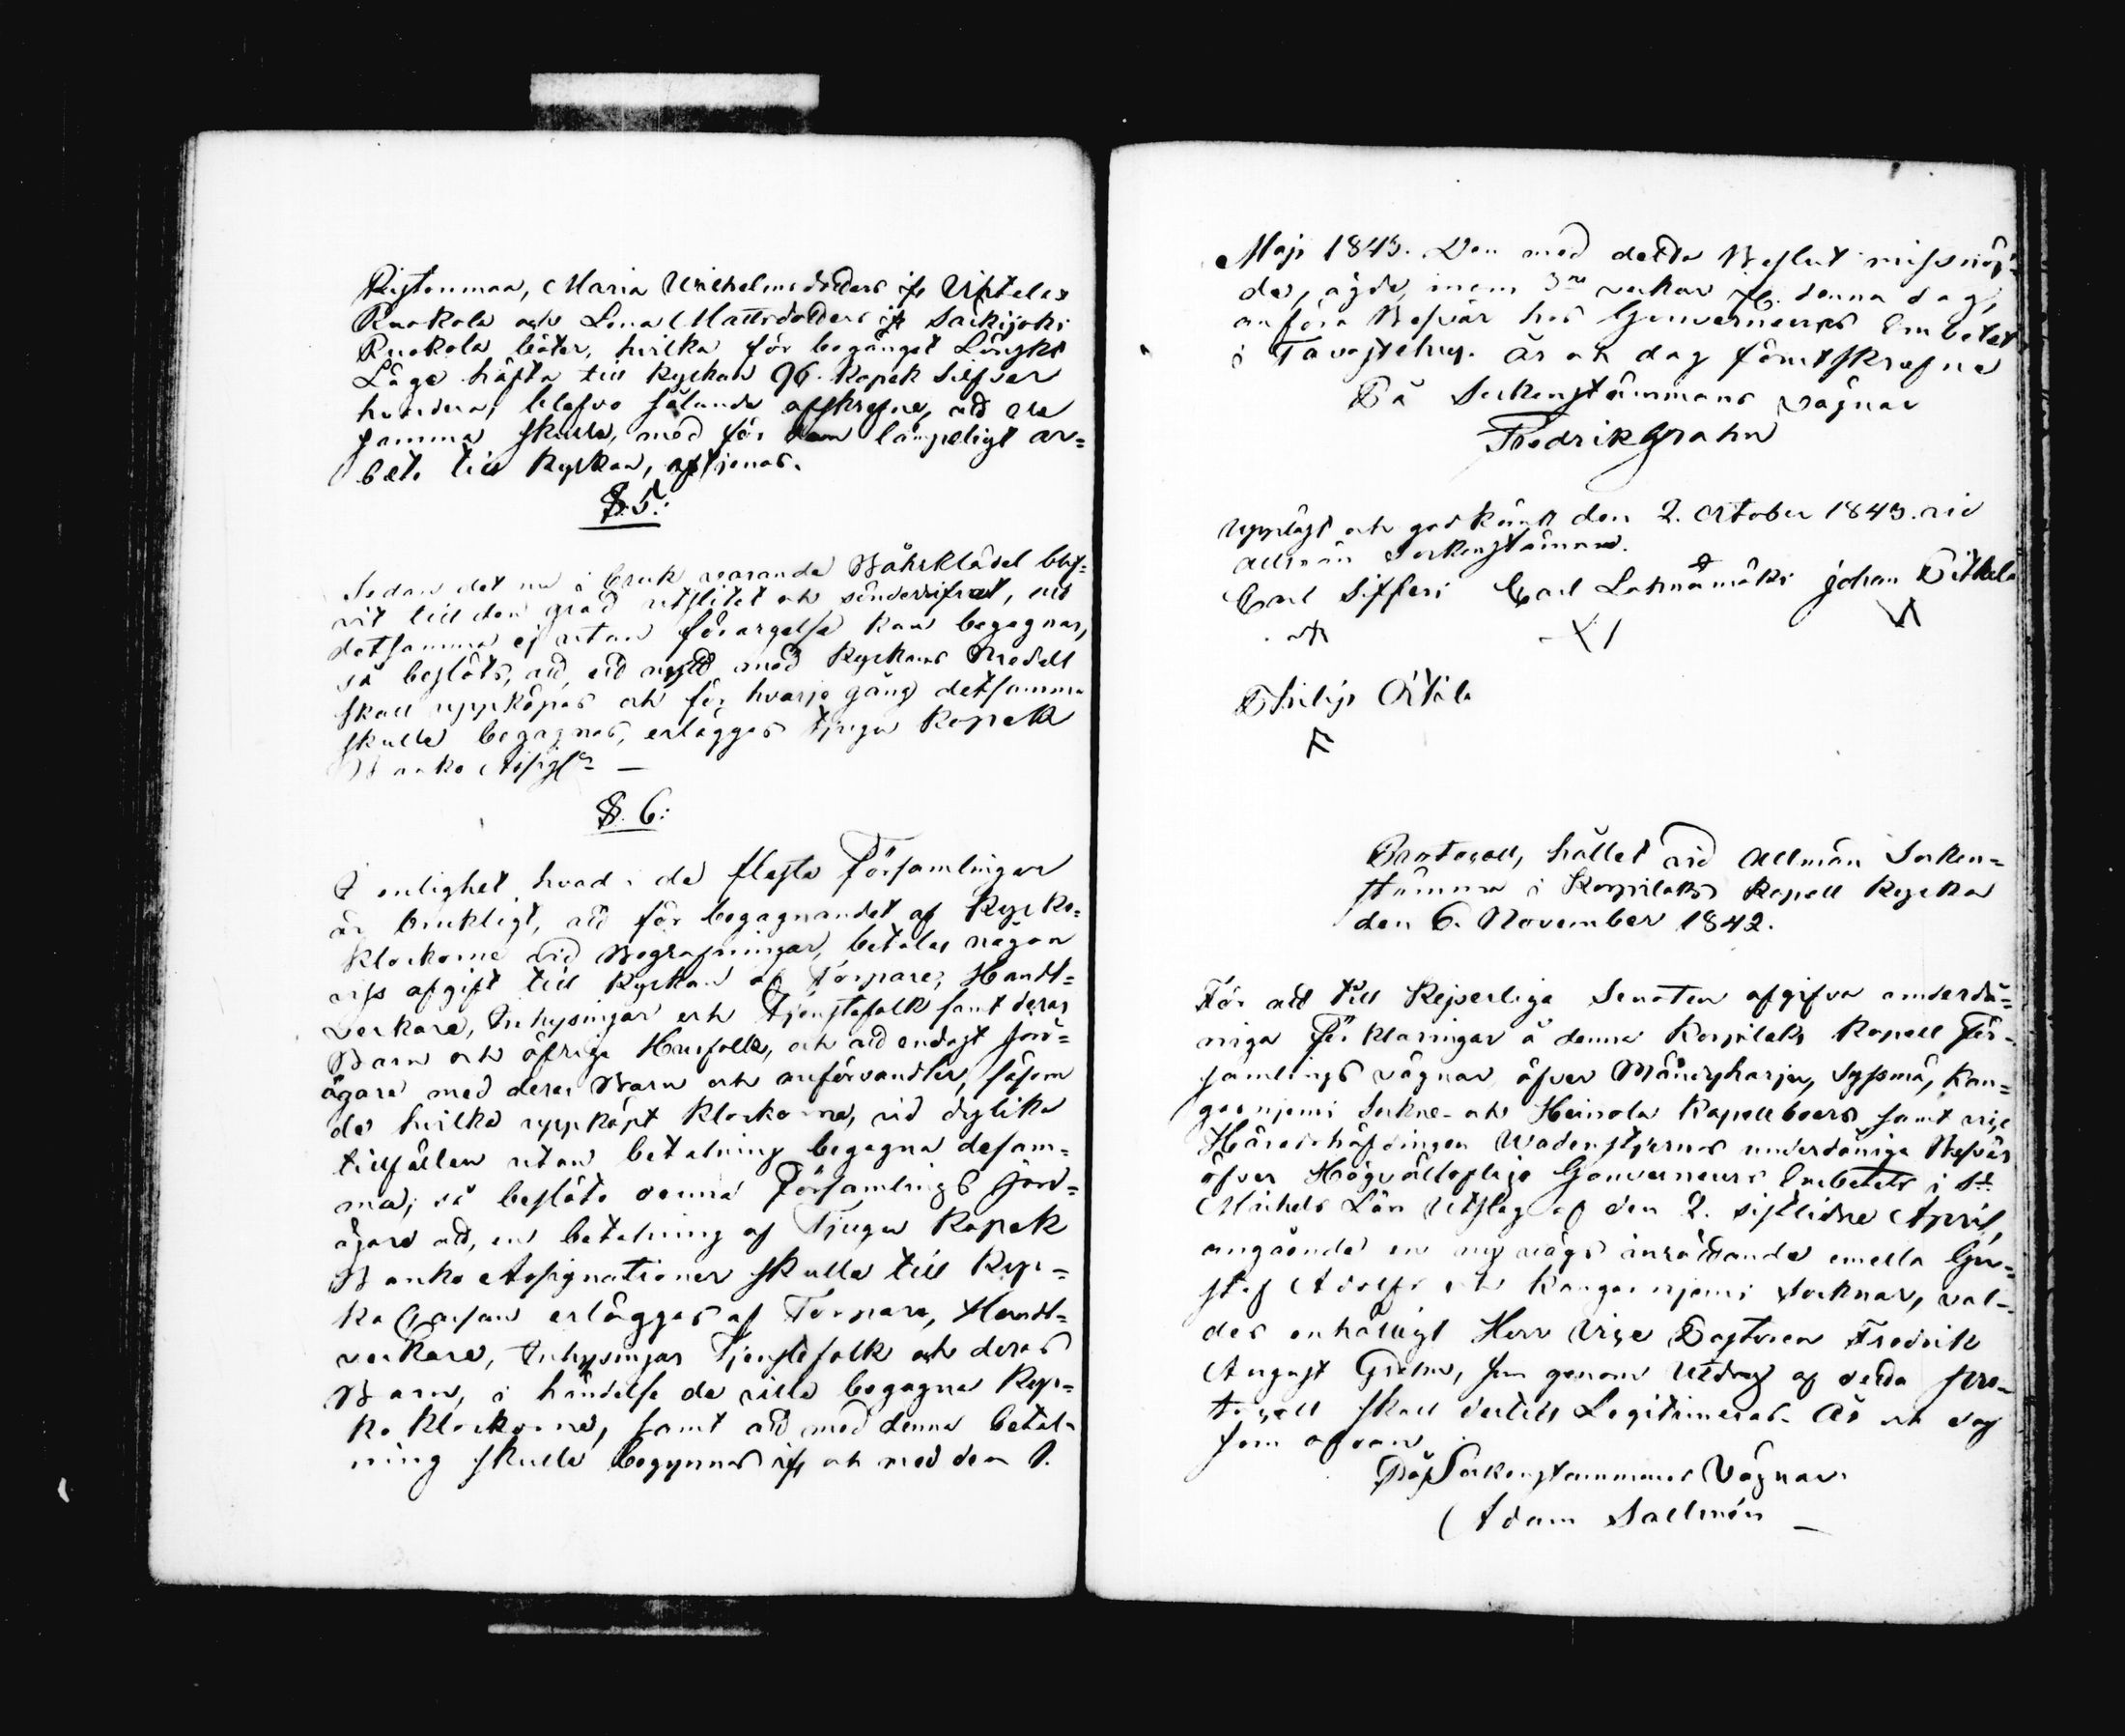 Ristenmaa, Maria Wilhelmsdotters ifr Uihtelex
Ruokola och Lena Mattsdotters ifr Särkijoki
Ruokola böter, hvilka för begånget Löngks
Läge häfta till Kyrkan 96 Kopek Silfver
hvardera, blefvo sålunda afskrefne, att de
samma skulle, med för dem lämpeligt ar=
bete till Kyrkan, aftjenas.
§. 5:
Sedan det nu i bruk varande Båhrklädet blif=
vit till den grad utslitet och sönderrifvet, att
detsamma ej utan förargelse kan begagnas,
så beslöts, att ett nytt med Kyrkans Medell
skall uppköpas och för hvarje gång detsamma
skulle begagnas, erlägges tjugu Kopek
Banko Assign. —
§. 6:
I enlighet hvad i de flesta Församlingar
är brukligt, att för begagnandet af Kyrko=
klockorne vid Begrafningar, betalas någon
viss afgift till Kyrkan af Torpare, Handt=
verkare, Inhysingar och Tjenstefolk samt deras
Barn och öfriga Husfolk, och att endast Jord=
ägare med deras Barn och anförvandter, såsom
de hvilka uppköpt klockorna, vid dylika
tillfällen utan betalning begagna desam=
ma; så beslöto denna Församlings Jord=
ägare att, en betalning af Tjugu Kopek
Banko Assignationer skulle till Kyr=
ko Cassan erläggas af Torpare, Handt=
verkare, Inhysingar Tjenstefolk och deras
Barn, i händelse de ville begagna Kyr=
ko klockorne, samt att med denna betal=
ning skulle begynnas ifr och med den 1.
Maji 1843. Den med detta Beslut missnöj=
de, ägde, inom 3ne veckor fr. denna dag,
anföra Besvär hos Gouverneurs Embetet
i Tavastehus. År och dag förutskrefne
På Sockenstämmans vägnar
Fredrik Grahn
Uppläst och godkänt den 2. October 1843. vid
allmän Sockenstämma.
Carl Sifferi Carl Lahnamäki Johan Pitkele
Philip Oitila
Protocoll, hållet vid Allmän Socken=
stämma i Korpilaks Kapell Kyrka
den 6. November 1842.
För att till Kejserliga Senaten afgifva underdå=
niga Förklaringar å denna Korpilaks Kapell För=
samlings vägnar öfver Mändyharju, Sysmä, Kan=
gasnjemi Sockne- och Heinola Kapellboers samt vice
Häradshöfdingen Wadenstjernas underdåniga Besvär
öfver Högvällofliga Gouverneurs Embetets i St.
Michels Län Utslag af den 2. sistlidne April,
angående en ny vägs inrättande emella Gu=
staf Adolfs och Kangasnjemi Socknar, val=
des enhälligt Herr Vice Pastoren Fredrik
August Grahn, som genom Utdrag af detta Pro=
tocoll skall dertill Legitimeras. År och dag
som ofvan
På Sockenstämmans Vägnar
Adam Sallmén —